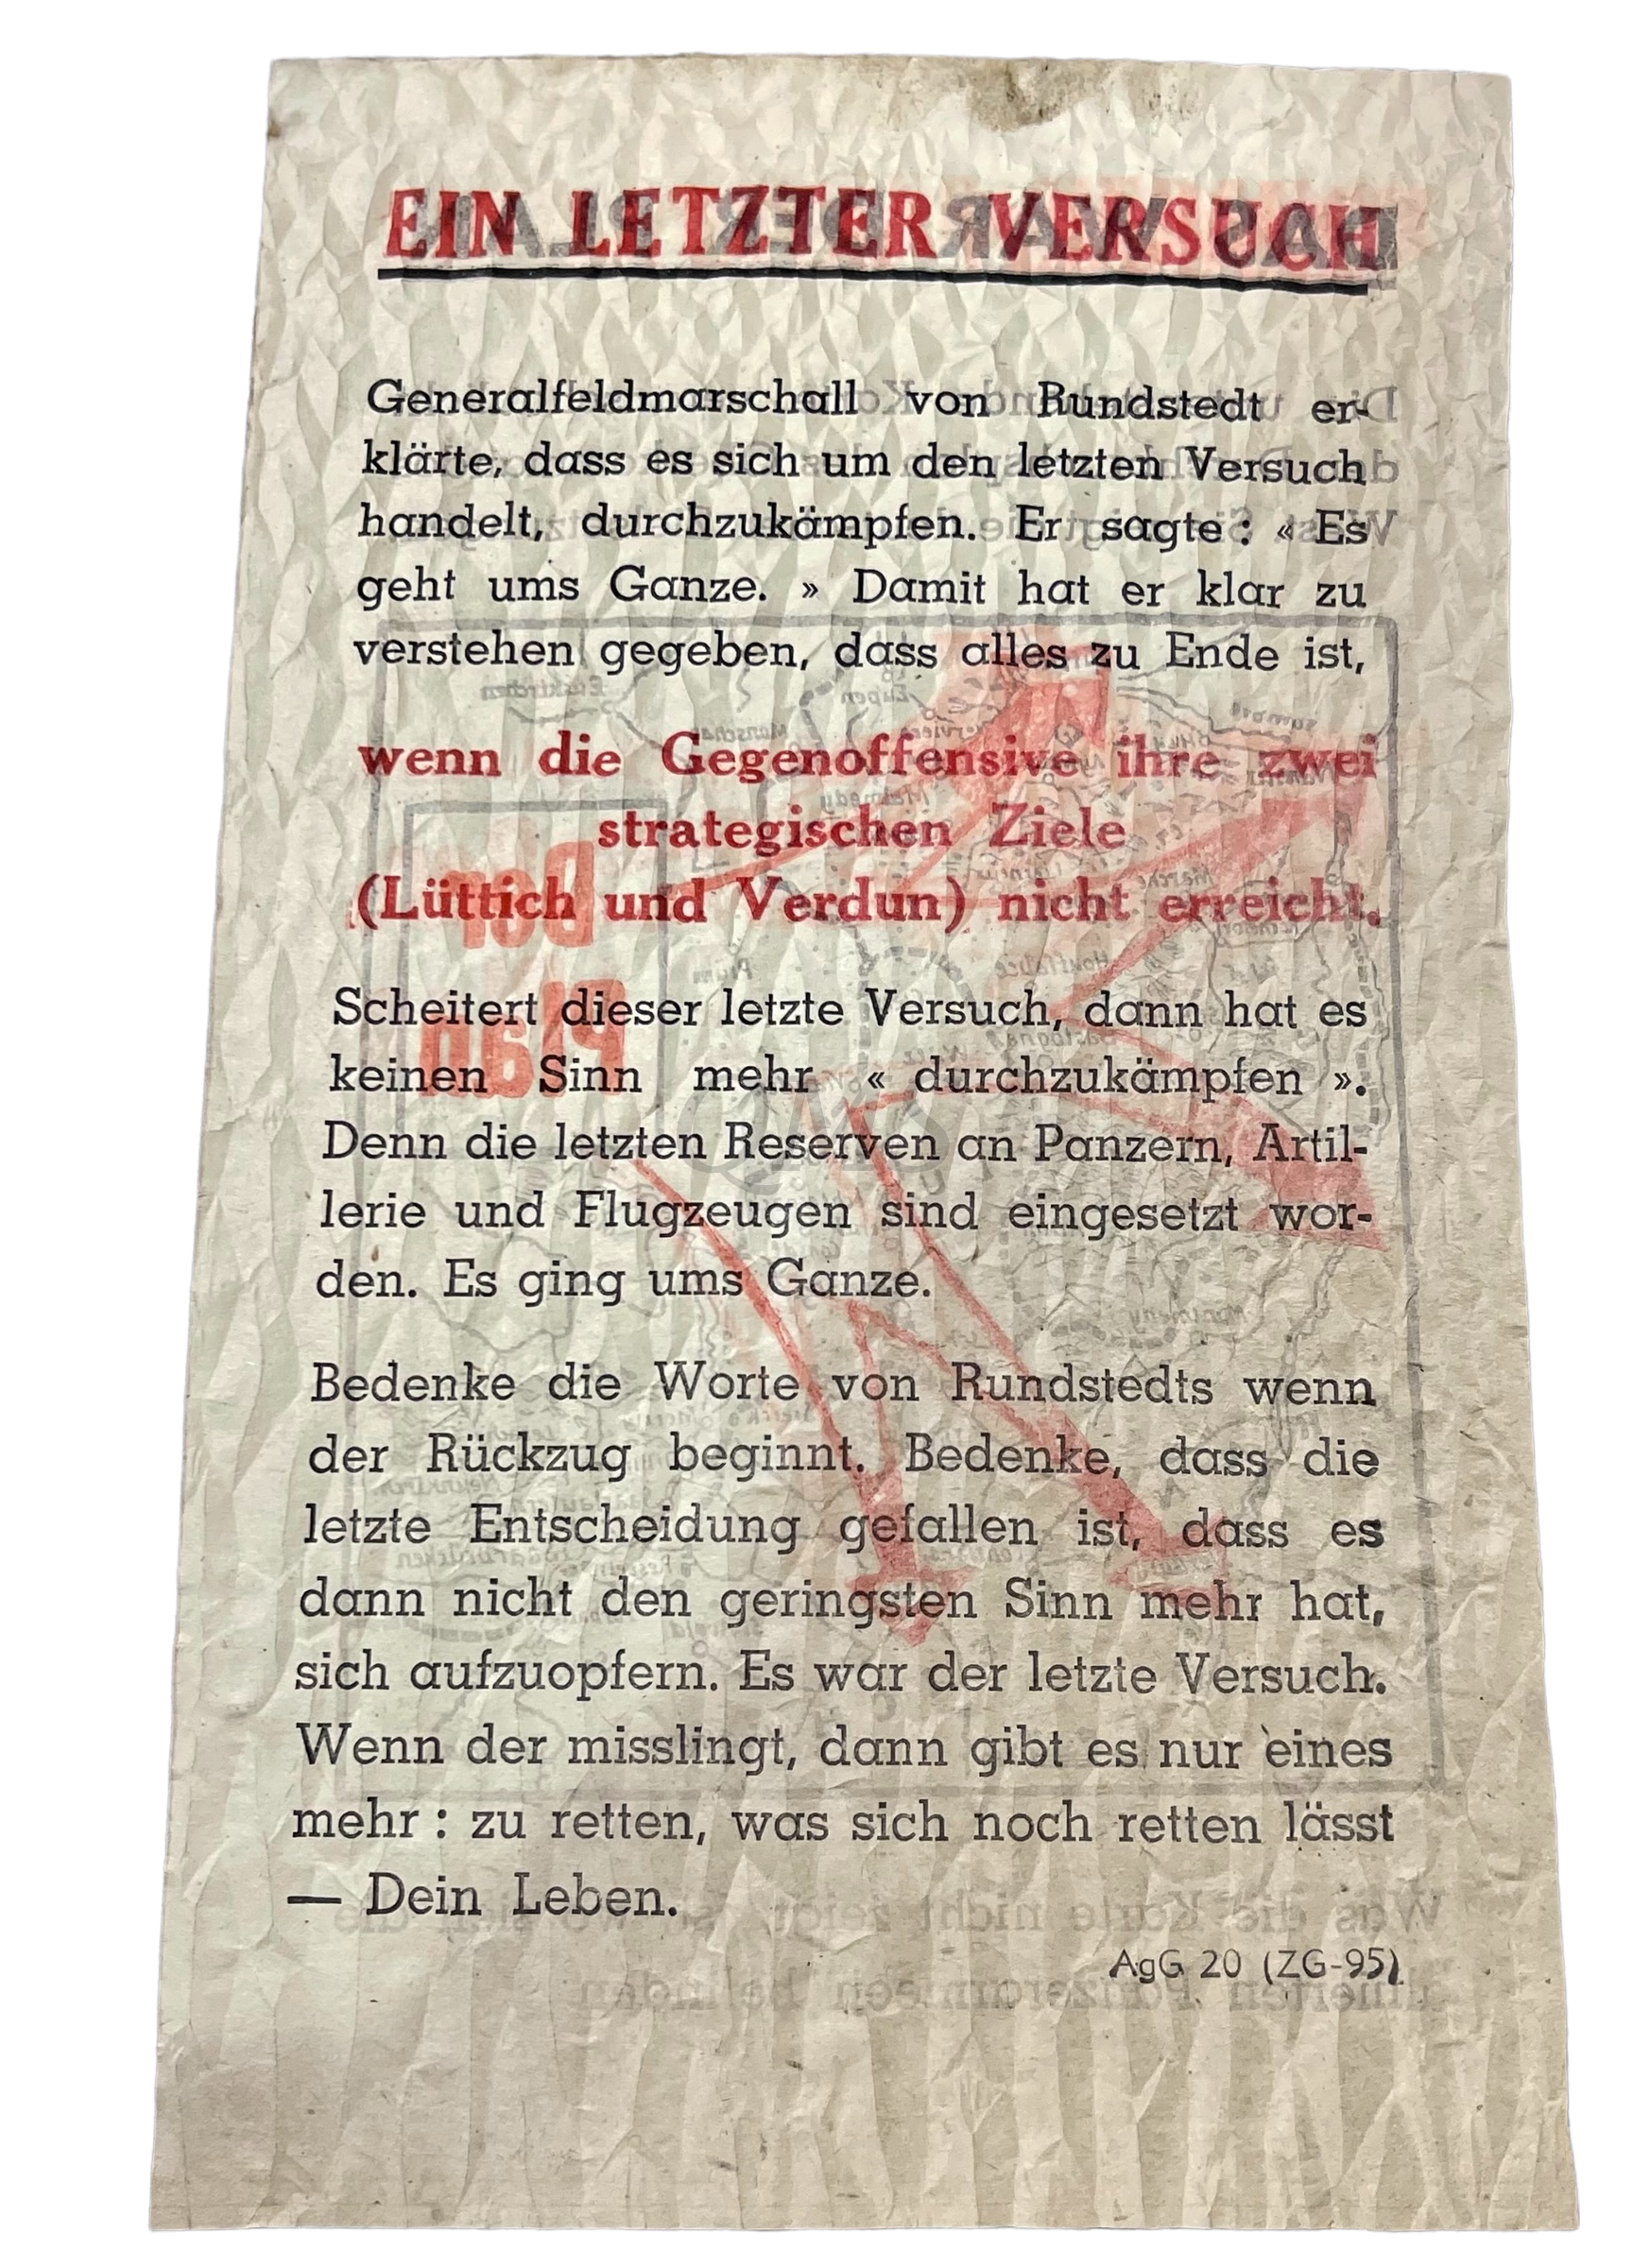 EIN LETZTER VERSUCH
Generalfeldmarschall von Rundstedt er-
klärte, dass es sich um den letzten Versuch
handelt, durchzukämpfen. Er sagte : « Es
geht ums Ganze. » Damit hat er klar zu
verstehen gegeben, dass alles zu Ende ist,
wenn die Gegenoffensive ihre zwei
strategischen Ziele
(Lüttich und Verdun) nicht erreicht.
Scheitert dieser letzte Versuch, dann hat es
keinen Sinn mehr « durchzukämpfen ».
Denn die letzten Reserven an Panzern, Artil-
lerie und Flugzeugen sind eingesetzt wor-
den. Es ging ums Ganze.
Bedenke die Worte von Rundstedts wenn
der Rückzug beginnt. Bedenke, dass die
letzte Entscheidung gefallen ist, dass es
dann nicht den geringsten Sinn mehr hat,
sich aufzuopfern. Es war der letzte Versuch.
Wenn der misslingt, dann gibt es nur eines
mehr : zu retten, was sich noch retten lässt
— Dein Leben.
AgG 20 (ZG-95)